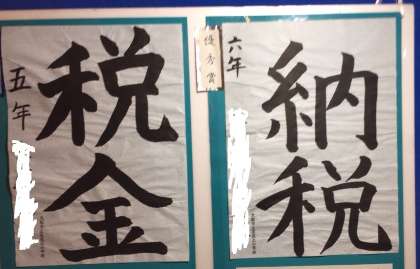 五年
税金
優秀賞
六年
納税